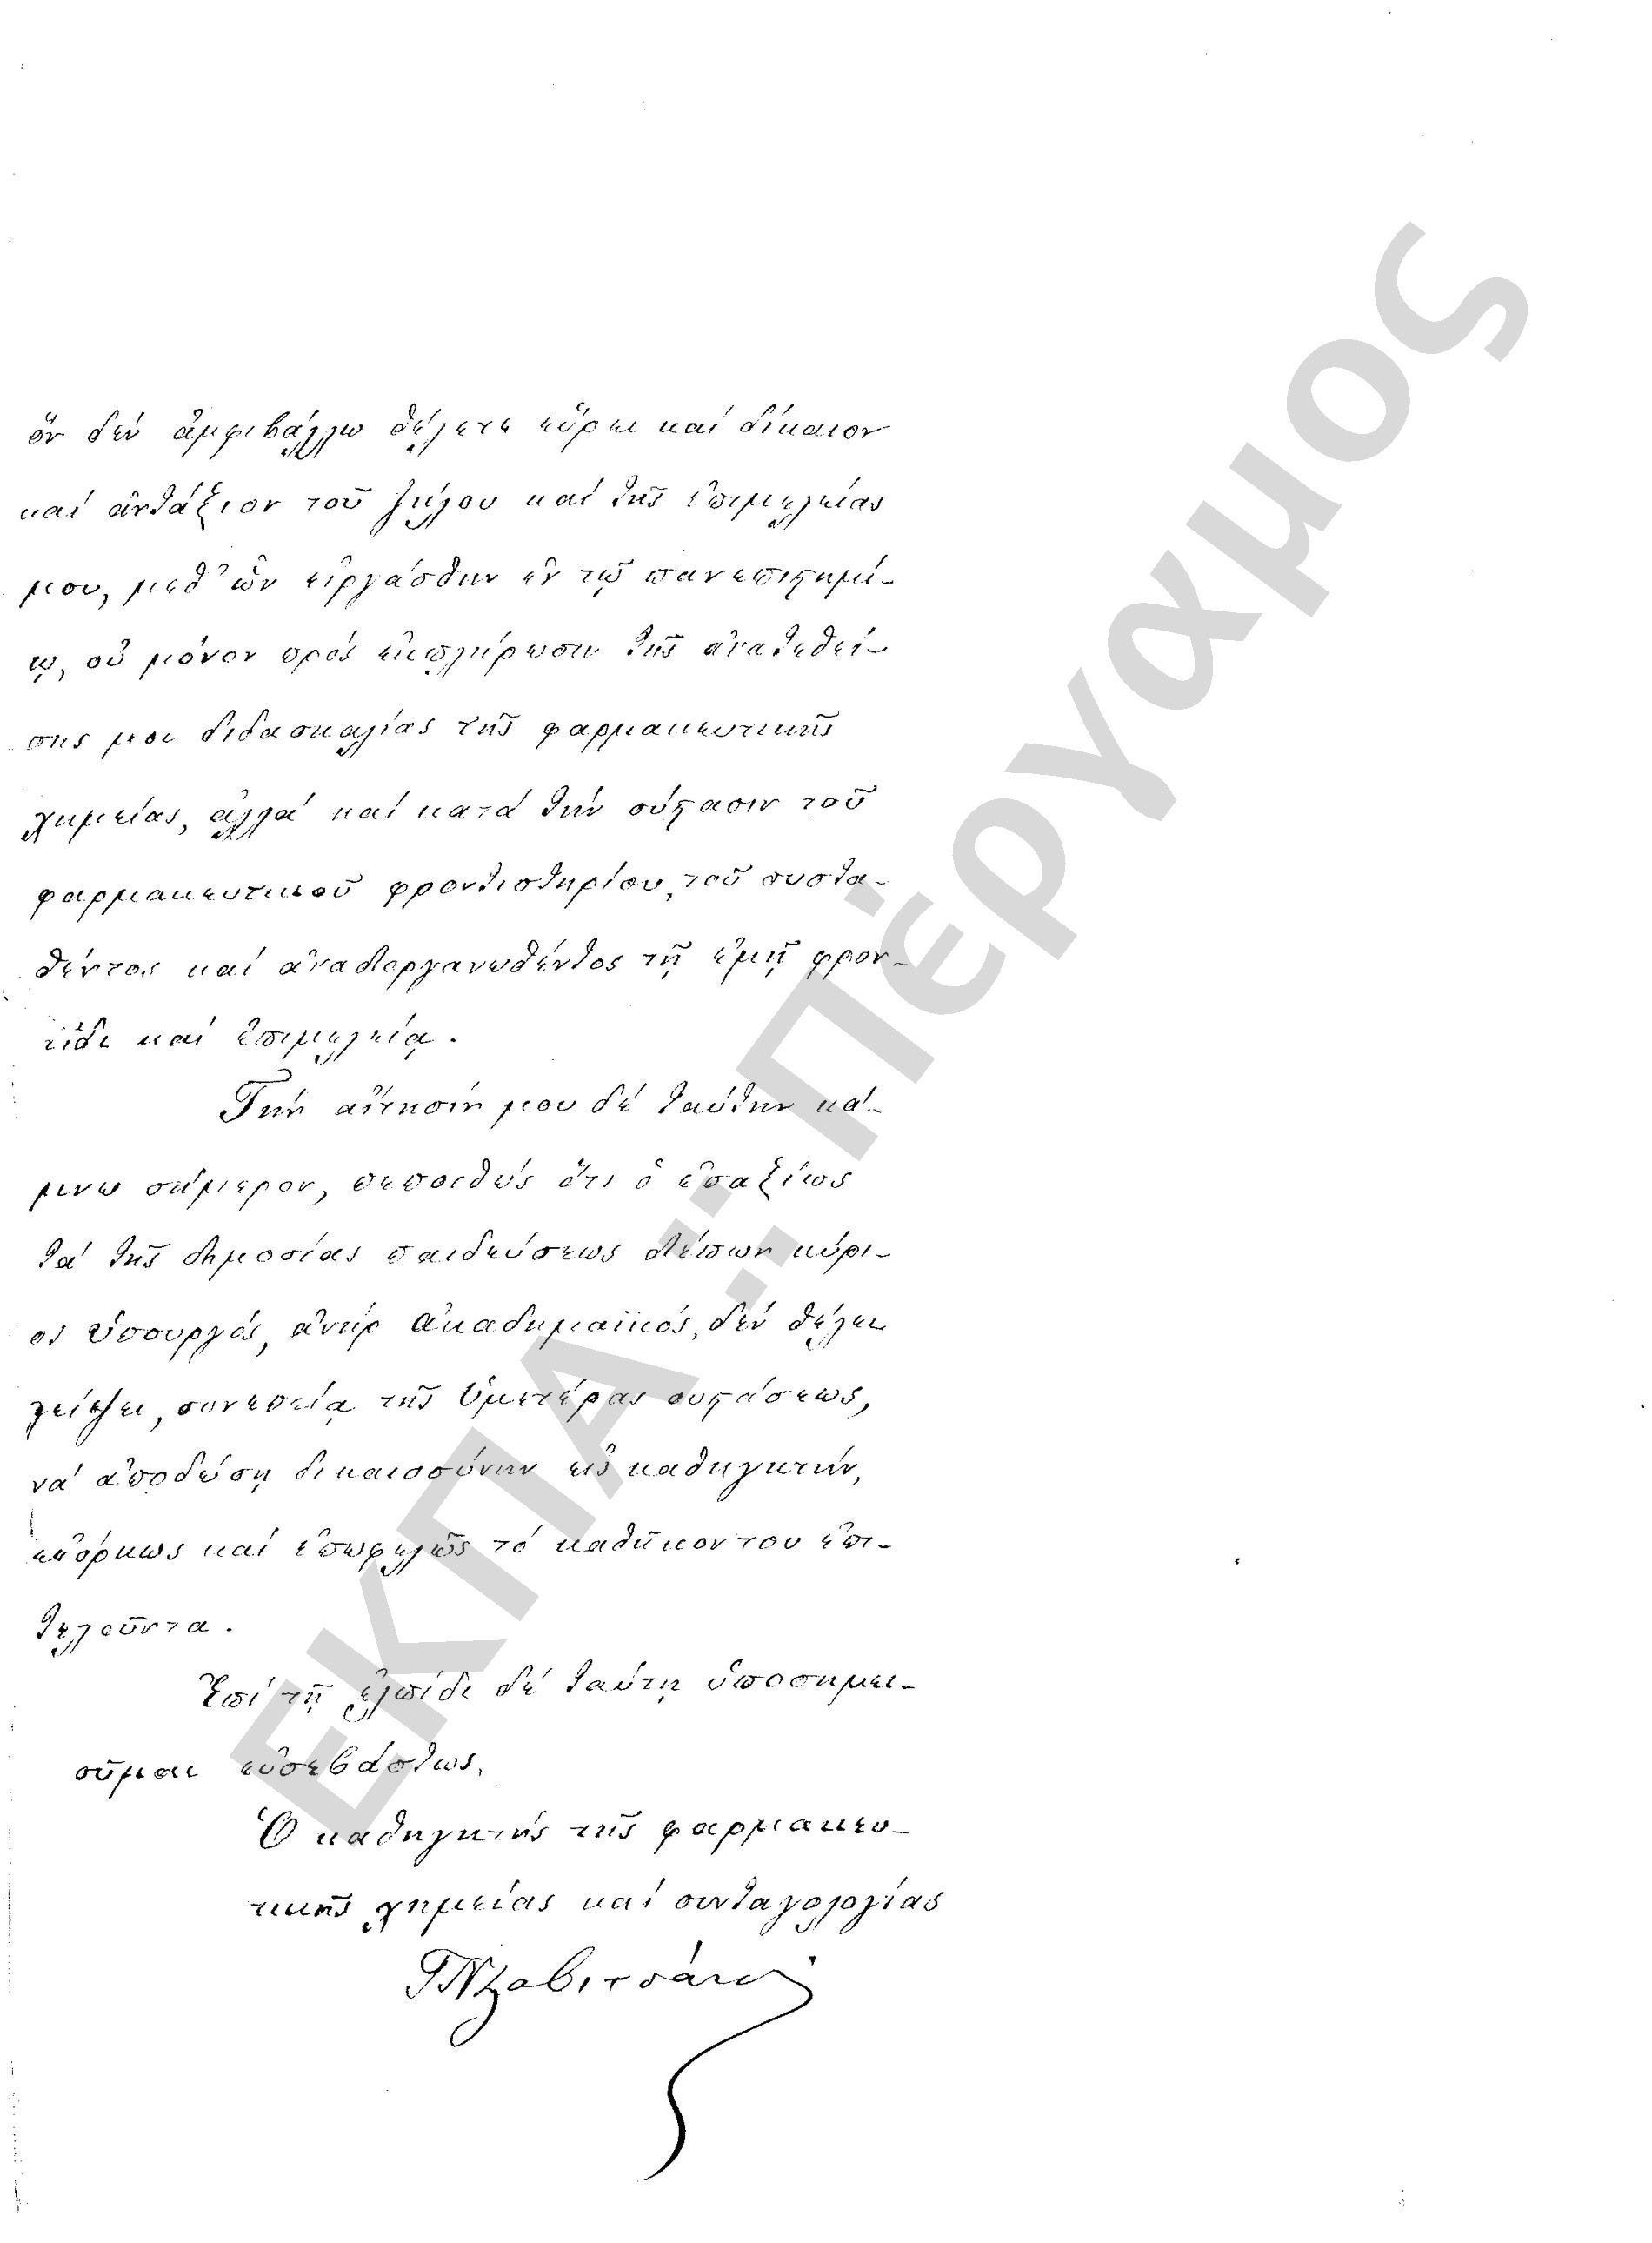 ὃν δέν ἀμφιβάλλω θέλετε εὕρει καί δίκαιον
καί ἀντάξιον τοῦ ζήλου καί τῆς ἐπιμελείας
μου, μεθ' ὧν εἰργάσθην ἐν τῷ πανεπιστημί-
ῳ, οὐ μόνον πρός ἐκπλήρωσιν τῆς ἀνατεθεί-
σης μοι διδασκαλίας τῆς φαρμακευτικῆς
χημείας, ἀλλά καί κατά τήν σύστασιν τοῦ
φαρμακευτικοῦ φροντιστηρίου, τοῦ συστα-
θέντος καί ἀναδιοργανωθέντος τῇ ἐμῇ φρον-
τίδι καί ἐπιμελείᾳ.
Τήν αἴτησίν μου δέ ταύτην κά-
μνω σήμερον, πεποιθώς ὅτι ὁ ἐπαξίως
τά τῆς δημοσίας παιδεύσεως διέπων κύρι-
ος ὑπουργός, ἀνήρ ἀκαδημαϊκός, δέν θέλει
λείψει, συνεπείᾳ τῆς Ὑμετέρας συστάσεως,
νά ἀποδώσῃ δικαιοσύνην εἰς καθηγητήν,
εὐόρκως καί ἐπωφελῶς τό καθῆκον του ἐπι-
τελοῦντα.
Ἐπί τῇ ἐλπίδι δέ ταύτῃ ὑποσημει-
οῦμαι εὐσεβάστως.
Ὁ καθηγητής τῆς φαρμακευ-
τικῆς χημείας καί συνταγολογίας
ΕΚΠΑ.: Πέργαμος